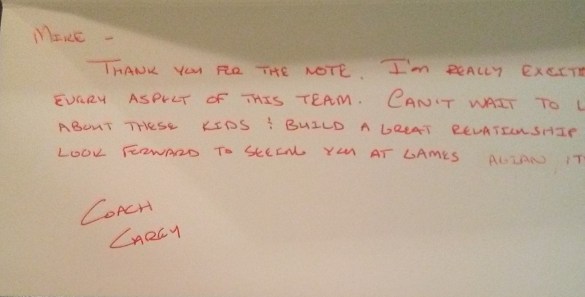 MIKE -
THANK YOU FOR THE NOTE. I'm REALLY EXCITE
EVERY ASPECT OF THIS TEAM. CAN'T WAIT TO L
ABOUT THESE KIDS & BUILD A GREAT RELATIONSHIP
LOOK FORWARD TO SEEING YOU AT GAMES AGIAN IT
COACH